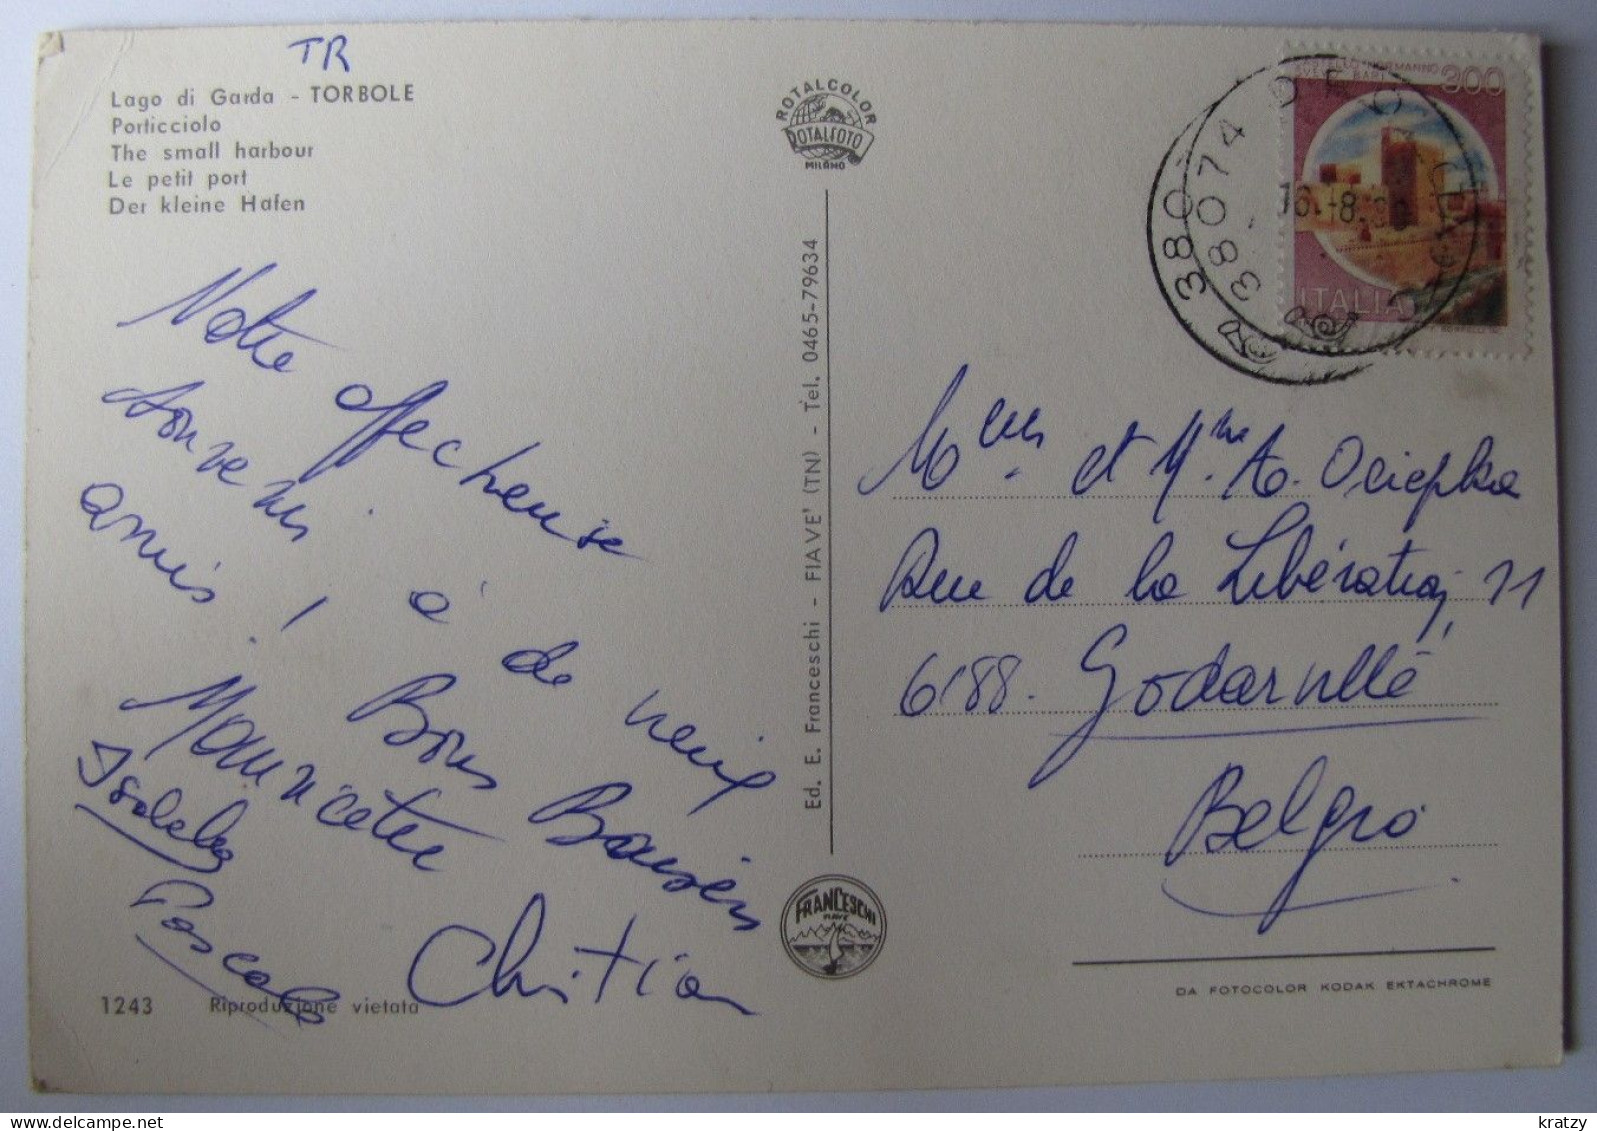 TR
Lago di Garda - TORBOLE
Porticciolo
The small harbour
Le petit port
Der kleine Hafen
Notre affectueuse
souvenir à de vieux
amis !
Bons Baisers
Isabelle
Pascal
Christian
1243 Riproduzione vietata
ROTALCOLOR
ROTALFOTO
MILANO
Ed. E. Franceschi - FIAVE' (TN) - Tel. 0465-79634
FRANCESCHI
FIAVE
CASTELLO NORMANNO
SVEVO BARI
300
ITALIA
38074 DRO
16.-8.
et Mme A. Ociepka
Rue de la Libération, 71
6188. Godarville
Belgio
DA FOTOCOLOR KODAK EKTACHROME
kratzy